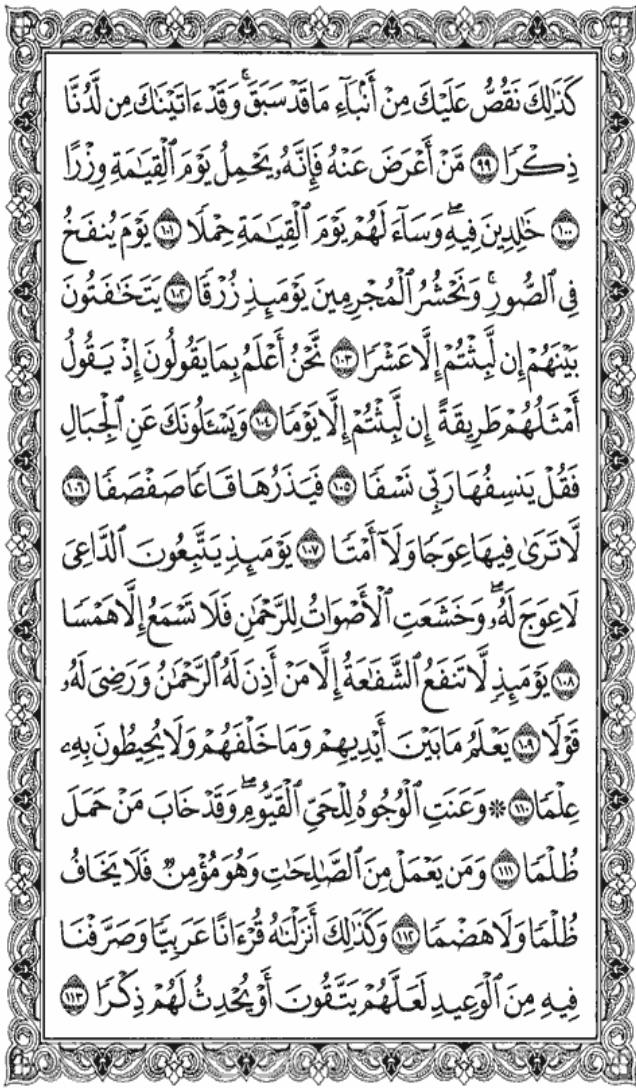 كَذَٰلِكَ نَقُصُّ عَلَيْكَ مِنْ أَنۢبَآءِ مَا قَدْ سَبَقَ ۚ وَقَدْ ءَاتَيْنَٰكَ مِن لَّدُنَّا
ذِكْرًا ۝٩٩ مَّنْ أَعْرَضَ عَنْهُ فَإِنَّهُۥ يَحْمِلُ يَوْمَ ٱلْقِيَٰمَةِ وِزْرًا
۝١٠٠ خَٰلِدِينَ فِيهِ ۖ وَسَآءَ لَهُمْ يَوْمَ ٱلْقِيَٰمَةِ حِمْلًا ۝١٠١ يَوْمَ يُنفَخُ
فِى ٱلصُّورِ ۚ وَنَحْشُرُ ٱلْمُجْرِمِينَ يَوْمَئِذٍ زُرْقًا ۝١٠٢ يَتَخَٰفَتُونَ
بَيْنَهُمْ إِن لَّبِثْتُمْ إِلَّا عَشْرًا ۝١٠٣ نَّحْنُ أَعْلَمُ بِمَا يَقُولُونَ إِذْ يَقُولُ
أَمْثَلُهُمْ طَرِيقَةً إِن لَّبِثْتُمْ إِلَّا يَوْمًا ۝١٠٤ وَيَسْـَٔلُونَكَ عَنِ ٱلْجِبَالِ
فَقُلْ يَنسِفُهَا رَبِّى نَسْفًا ۝١٠٥ فَيَذَرُهَا قَاعًا صَفْصَفًا ۝١٠٦
لَّا تَرَىٰ فِيهَا عِوَجًا وَلَآ أَمْتًا ۝١٠٧ يَوْمَئِذٍ يَتَّبِعُونَ ٱلدَّاعِىَ
لَا عِوَجَ لَهُۥ ۖ وَخَشَعَتِ ٱلْأَصْوَاتُ لِلرَّحْمَٰنِ فَلَا تَسْمَعُ إِلَّا هَمْسًا
۝١٠٨ يَوْمَئِذٍ لَّا تَنفَعُ ٱلشَّفَٰعَةُ إِلَّا مَنْ أَذِنَ لَهُ ٱلرَّحْمَٰنُ وَرَضِىَ لَهُۥ
قَوْلًا ۝١٠٩ يَعْلَمُ مَا بَيْنَ أَيْدِيهِمْ وَمَا خَلْفَهُمْ وَلَا يُحِيطُونَ بِهِۦ
عِلْمًا ۝١١٠ ۞ وَعَنَتِ ٱلْوُجُوهُ لِلْحَىِّ ٱلْقَيُّومِ ۖ وَقَدْ خَابَ مَنْ حَمَلَ
ظُلْمًا ۝١١١ وَمَن يَعْمَلْ مِنَ ٱلصَّٰلِحَٰتِ وَهُوَ مُؤْمِنٌ فَلَا يَخَافُ
ظُلْمًا وَلَا هَضْمًا ۝١١٢ وَكَذَٰلِكَ أَنزَلْنَٰهُ قُرْءَانًا عَرَبِيًّا وَصَرَّفْنَا
فِيهِ مِنَ ٱلْوَعِيدِ لَعَلَّهُمْ يَتَّقُونَ أَوْ يُحْدِثُ لَهُمْ ذِكْرًا ۝١١٣